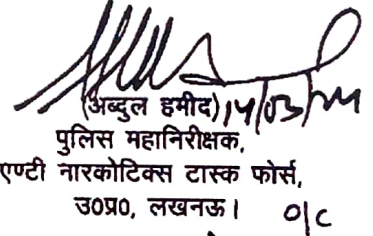 (अब्दुल हमीद) 14/03/24
पुलिस महानिरीक्षक,
एण्टी नारकोटिक्स टास्क फोर्स,
उ0प्र0, लखनऊ।
O/C